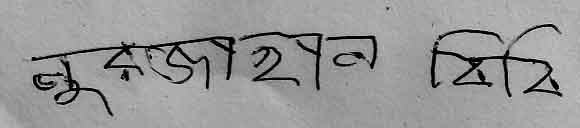 নুরজাহান বিবি